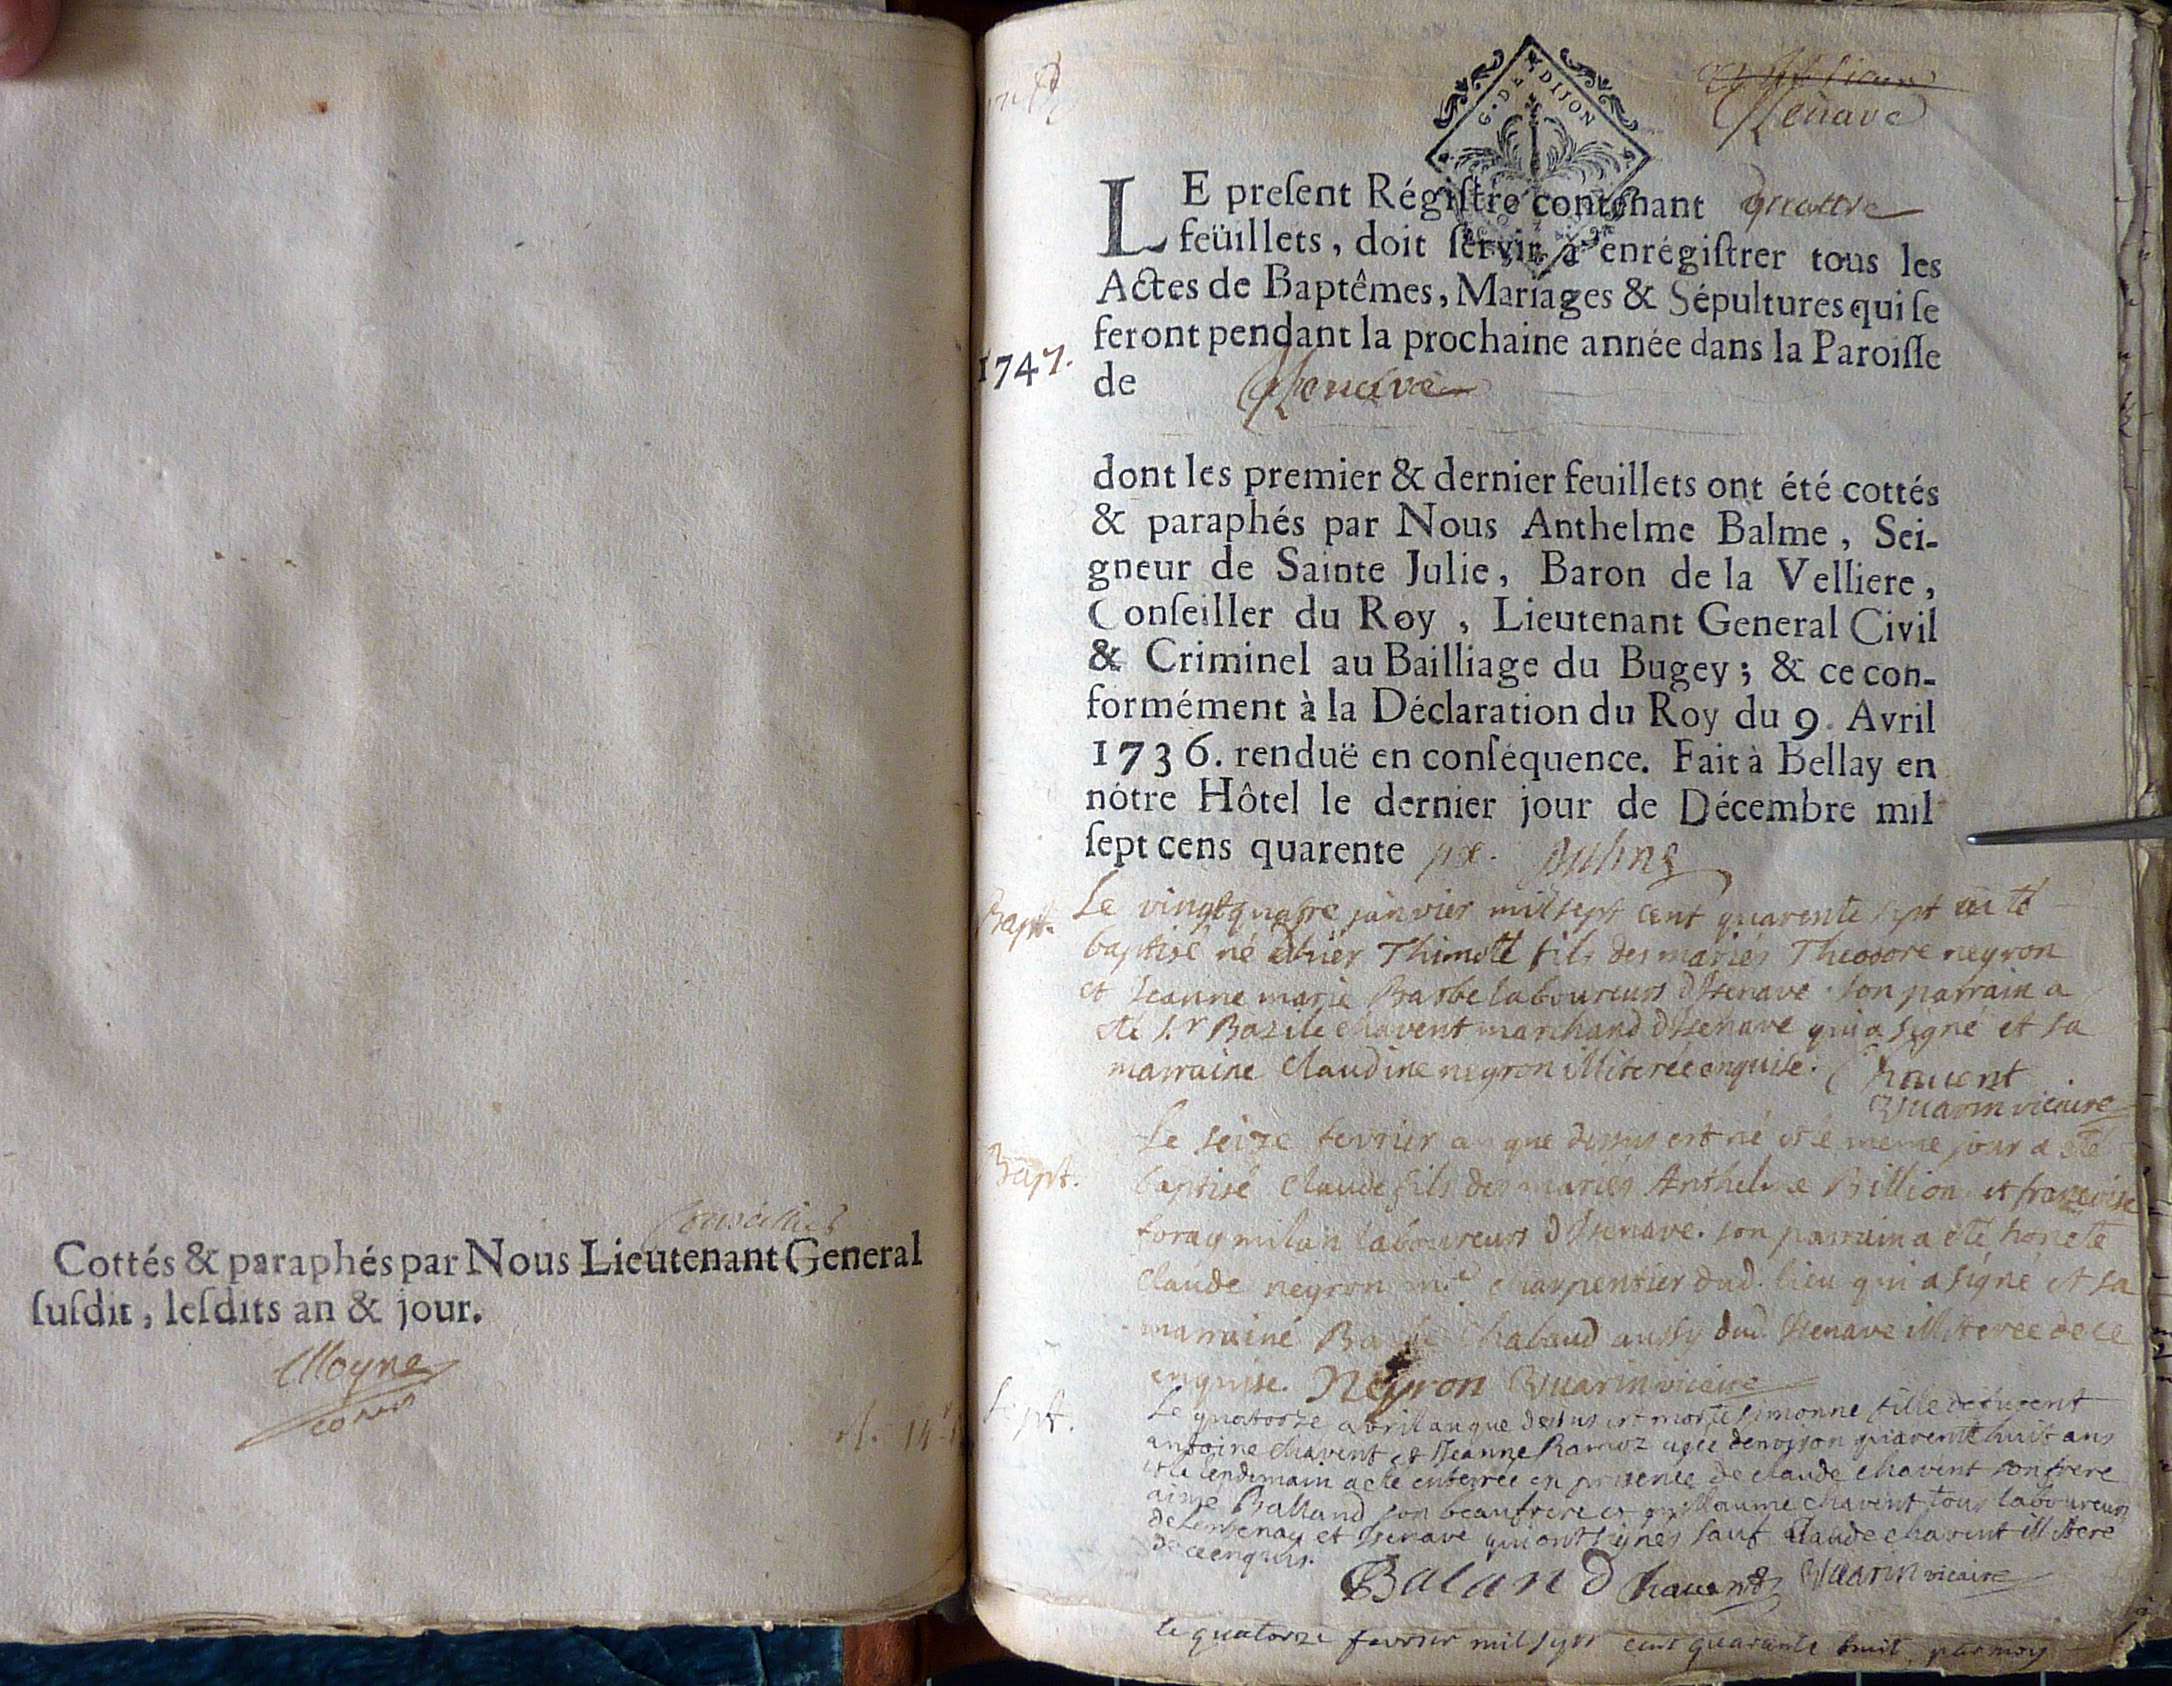 Conseiller
Cottés & paraphés par Nous Lieutenant General
susdit, lesdits an & jour.
Moyne
G. DE DIJON
Izenave
LE present Régistre contenant quattre
feüillets, doit servir à enrégistrer tous les
Actes de Baptêmes, Mariages & Sépultures qui se
feront pendant la prochaine année dans la Paroisse
1747.
de Izenave
dont les premier & dernier feuillets ont été cottés
& paraphés par Nous Anthelme Balme, Sei-
gneur de Sainte Julie, Baron de la Velliere,
Conseiller du Roy, Lieutenant General Civil
& Criminel au Bailliage du Bugey; & ce con-
formément à la Déclaration du Roy du 9. Avril
1736. renduë en conséquence. Fait à Bellay en
nótre Hôtel le dernier jour de Décembre mil
sept cens quarente six. Balme
Bapt.
Le vingtquatre janvier mil sept cent quarente sept a été
baptisé né d'hier Thimoté fils des mariés Theodore neyron
et Jeanne marie Barbe laboureurs d'Isenave. son parrain a
été Sr Bazile chavent marchand d'Isenave qui a signé et sa
marraine Claudine neyron illiterée enquise. Chavent
Vuarin vicaire
Bapt.
Le seize fevrier an que dessus est né et le meme jour a été
baptisé Claude fils des mariés Anthelme Billion et françoise
laboureurs d'Isenave. son parrain a été honete
Claude neyron me charpentier dud. lieu qui a signé et sa
marraine Chaband aussy dud. Isenave illiterée de ce
enquise. Neyron Vuarin vicaire
Sept.
Le quatorze avril an que dessus est morte simonne fille de furent
antoine chavent et Jeanne Ramoz agée d'environ quarente huit ans
et le lendemain a été enterrée en presence de claude chavent son frere
aimé Balland son beaufrere et guillaume chavent tous laboureurs
de et Isenave qui ont signés sauf claude chavent illitere
de ce enquis.
Baland Chavent Vuarin vicaire
le quatorze fevrier mil sept cent quarante huit, par moy